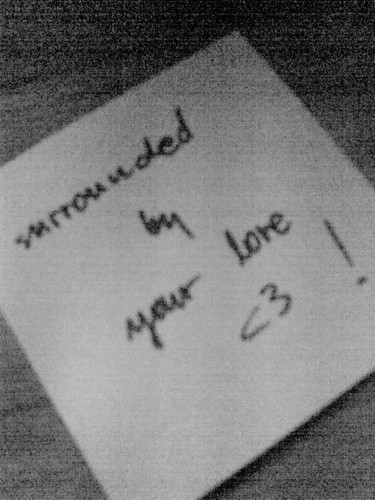 surrounded
by
your love !
<3